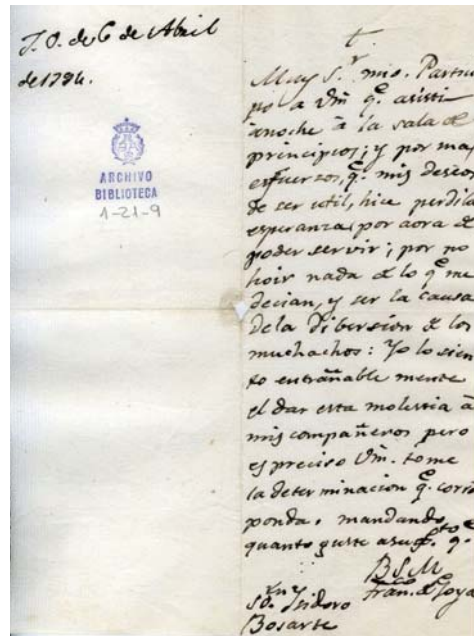 J. O. de 6 de Abril
de 1794.
ARCHIVO
BIBLIOTECA
1-21-9
Muy S.r mio. Partici
po a Vm q.e asisti
anoche â la sala de
principios; y por mas
esfuerzos, q.e mis deseos
de ser util, hice perdi la
esperanza por aora de
poder servir; por no
hoir nada de lo q.e me
decian, y ser la causa
dela dibersion de los
muchachos: Yo lo sien
to entrañable mente
el dar esta molestia â
mis compañeros pero
es preciso Vm. tome
la determinacion q.e corres
ponda, mandando
quanto guste a su q.
B S M
Fran.co de Goya
S.or Isidoro
Bosarte